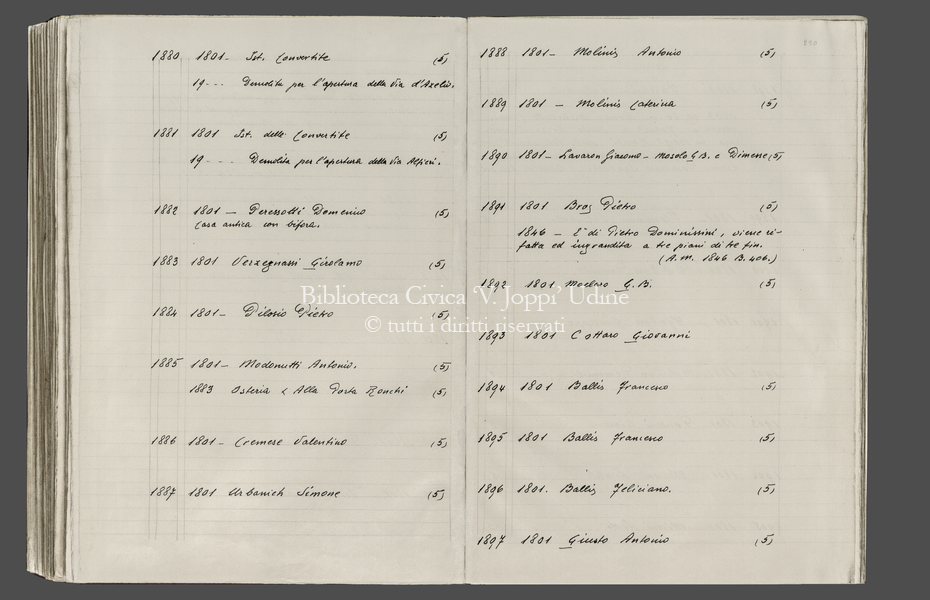 1880 1801- Ist. Convertite (5)
19--- Demolita per l'apertura della Via d'Azelio.
1881 1801 Ist. delle Convertite (5)
19--- Demolita per l'apertura della Via Alfieri.
1882 1801 - Peressotti Domenico (5)
Casa antica con bifora.
1883 1801 Verzegnassi Girolamo (5)
1884 1801- Pietro (5)
1885 1801- Modonutti Antonio. (5)
1883 Osteria < Alla Porta Ronchi (5)
1886 1801- Cremese Valentino (5)
1887 1801 Urbanich Simone (5)
810
1888 1801- Molinis Antonio (5)
1889 1801 - Molinis Caterina (5)
1890 1801- Lavaron Giacomo - G.B. e (5)
1891 1801 Pietro (5)
1846 - E' di Pietro Dominissini, viene ri-
fatta ed ingrandita a tre piani di tre fin.
(A.M. 1846 B. 406.)
1892 1801 G.B. (5)
Biblioteca Civica 'V. Joppi' Udine
© tutti i diritti riservati
1893 1801 Cottaro Giovanni
1894 1801 Ballis Francesco (5)
1895 1801 Ballis Francesco (5)
1896 1801. Ballis Feliciano. (5)
1897 1801 Giusto Antonio (5)